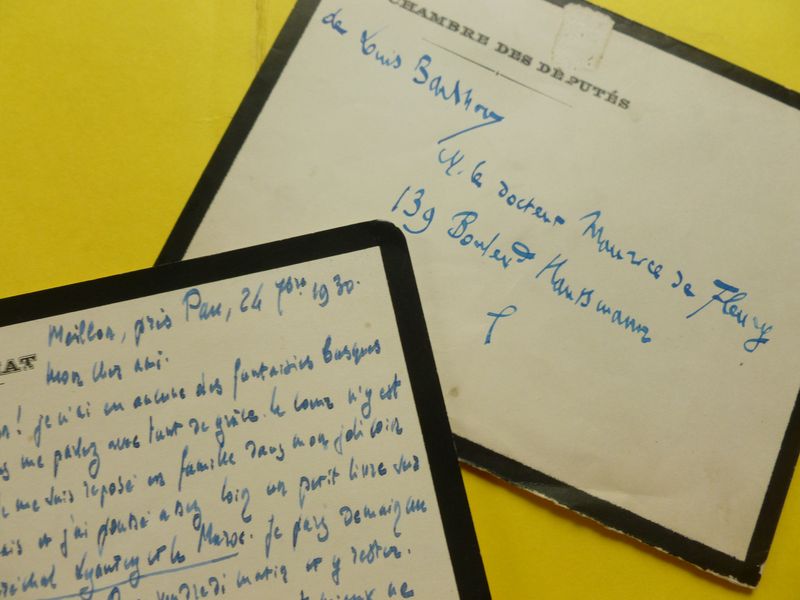 CHAMBRE DES DÉPUTÉS
de Louis Barthou
M. le docteur Maurice de Fleury
139 Boulevd Haussmann
Meillon, près Pau, 24 7bre 1930.
Mon cher ami.
! je n'ai eu aucune des fantaisies basques
me parlez avec tant de grâce. Le cœur n'y est
me suis reposé en famille dans mon joli coin
et j'ai poussé assez loin un petit livre sur
Lyautey et le Maroc. Je pars demain
vendredi matin et y rester.